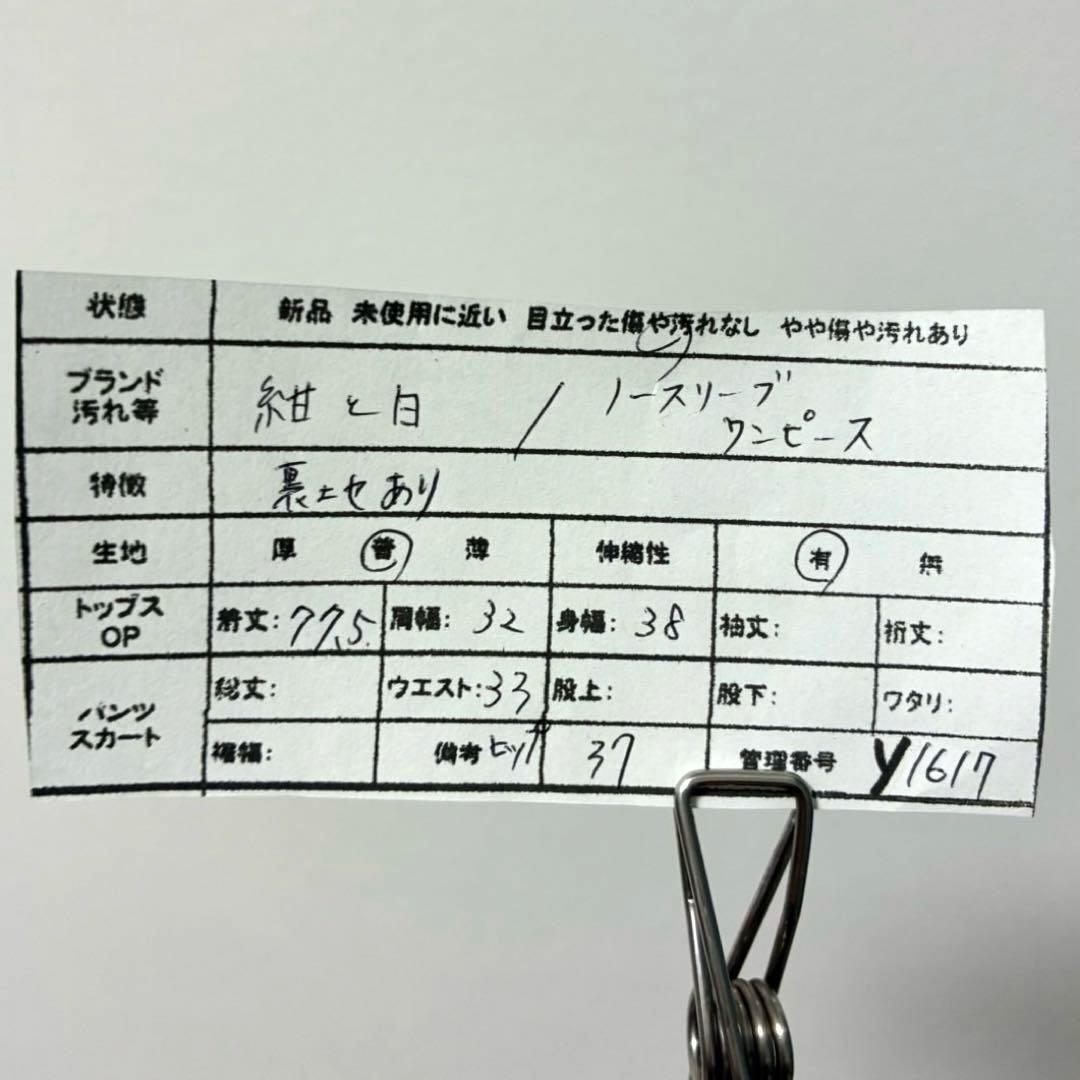 状態 新品 未使用に近い 目立った傷や汚れなし やや傷や汚れあり
ブランド 汚れ等 紺と白 / ノースリーブ ワンピース
特徴 裏土セあり
生地 厚 普 薄 伸縮性 有 無
トップス OP 着丈:77.5 肩幅:32 身幅:38 袖丈: 裄丈:
パンツ スカート 総丈: ウエスト:33 股上: 股下: ワタリ:
裾幅: 備考 ヒップ 37 管理番号 y1617